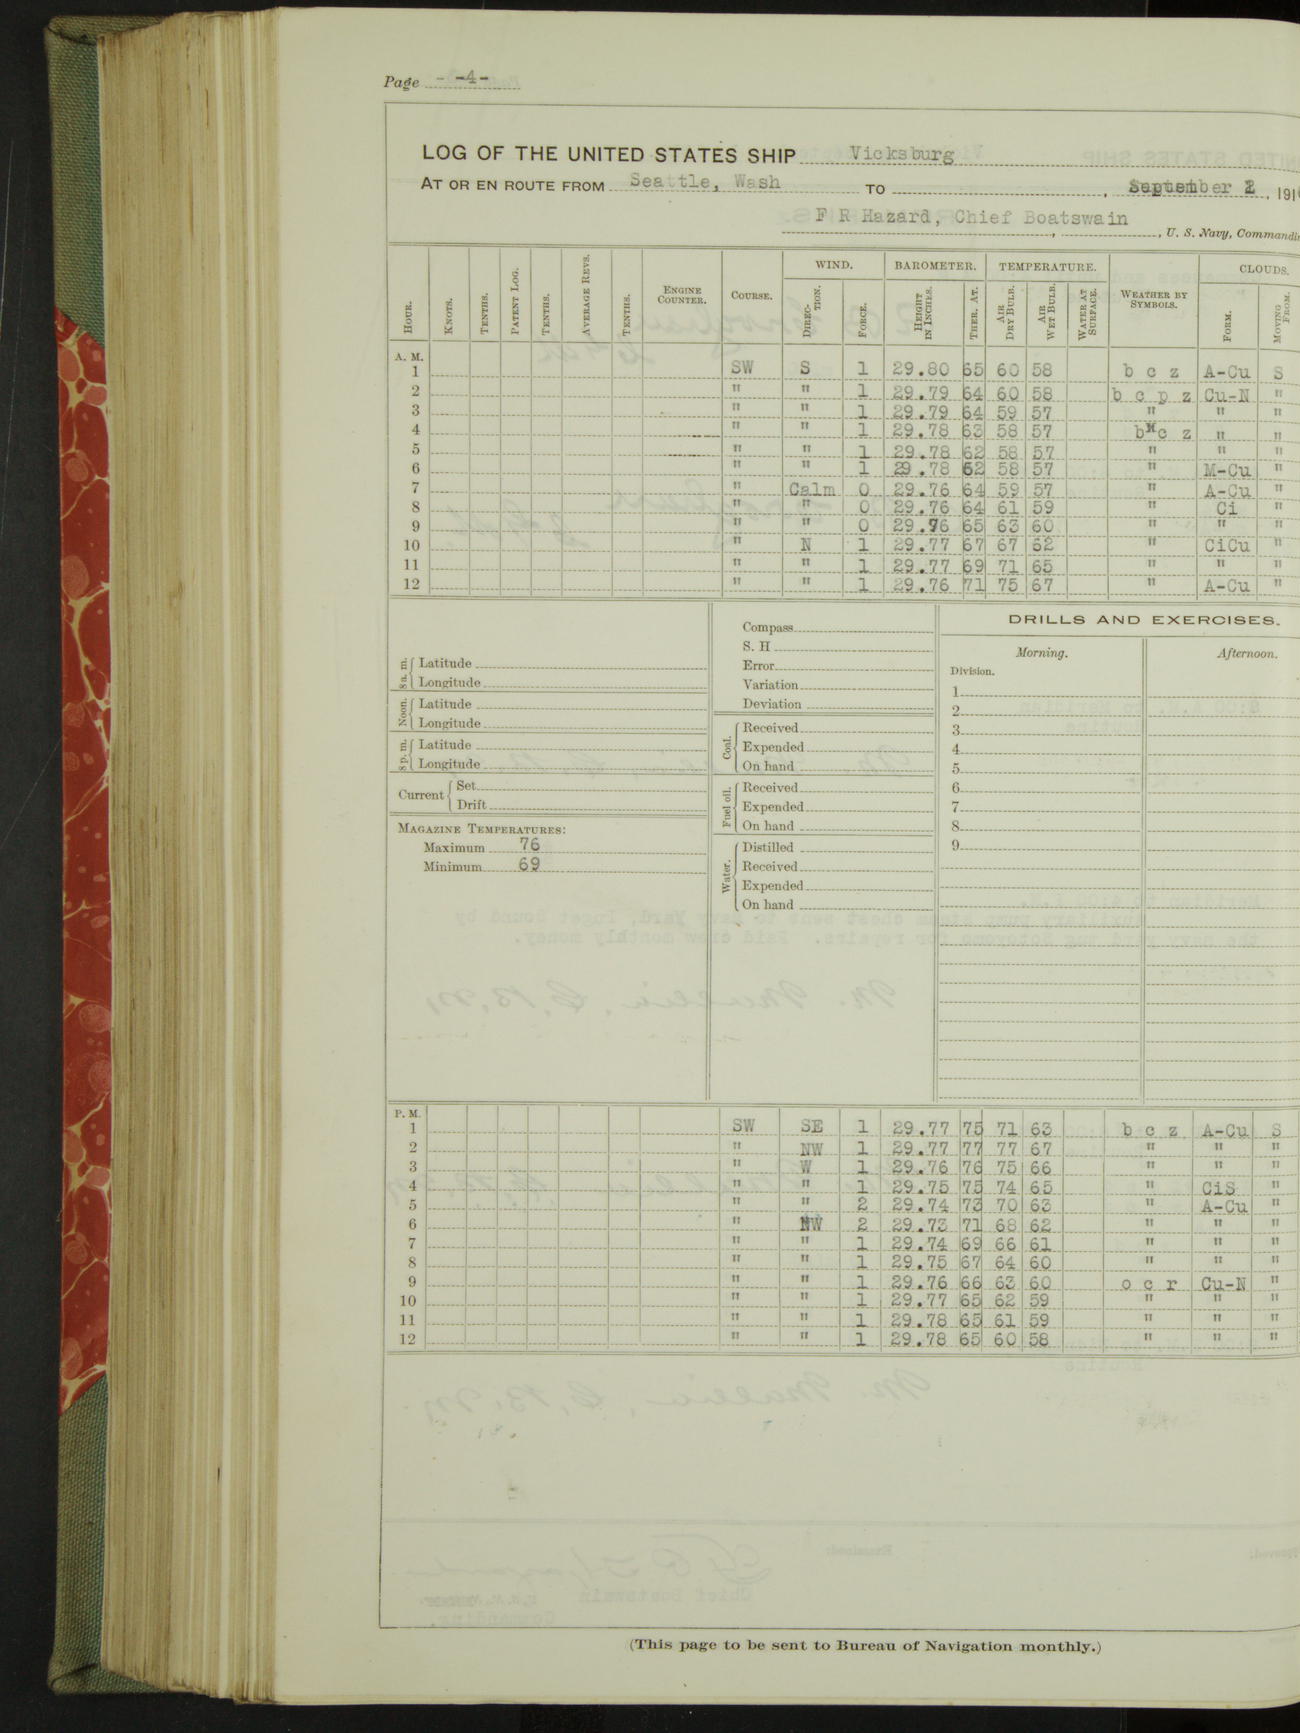 Page -4-
LOG OF THE UNITED STATES SHIP Vicksburg
AT OR EN ROUTE FROM Seattle, Wash TO , September 2, 191
F R Hazard, Chief Boatswain , U. S. Navy, Commandi
HOUR. KNOTS. TENTHS. PATENT LOG. TENTHS. AVERAGE REVS. TENTHS. ENGINE COUNTER. COURSE. WIND. DIRECTION. FORCE. BAROMETER. HEIGHT IN INCHES. THER. AT. TEMPERATURE. AIR DRY BULB. AIR WET BULB. WATER AT SURFACE. WEATHER BY SYMBOLS. CLOUDS. FORM. MOVING FROM.
A. M.
1 SW S 1 29.80 65 60 58 b c z A-Cu S
2 " " 1 29.79 64 60 58 b c p z Cu-N "
3 " " 1 29.79 64 59 57 " " "
4 " " 1 29.78 63 58 57 b c z " "
5 " " 1 29.78 62 58 57 " " "
6 " " 1 29.78 62 58 57 " M-Cu "
7 " Calm 0 29.76 64 59 57 " A-Cu "
8 " " 0 29.76 64 61 59 " Ci "
9 " " 0 29.76 65 63 60 " " "
10 " N 1 29.77 67 67 62 " CiCu "
11 " " 1 29.77 69 71 65 " " "
12 " " 1 29.76 71 75 67 " A-Cu "
8 a. m. Latitude
Longitude
Noon. Latitude
Longitude
8 p. m. Latitude
Longitude
Current Set
Drift
MAGAZINE TEMPERATURES:
Maximum 76
Minimum 69
Compass
S. H
Error
Variation
Deviation
Coal. Received
Expended
On hand
Fuel oil. Received
Expended
On hand
Water. Distilled
Received
Expended
On hand
DRILLS AND EXERCISES.
Morning. Afternoon.
Division.
1
2
3
4
5
6
7
8
9
P. M.
1 SW SE 1 29.77 75 71 63 b c z A-Cu S
2 " NW 1 29.77 77 77 67 " " "
3 " W 1 29.76 76 75 66 " " "
4 " " 1 29.75 75 74 65 " CiS "
5 " " 2 29.74 73 70 63 " A-Cu "
6 " NW 2 29.73 71 68 62 " " "
7 " " 1 29.74 69 66 61 " " "
8 " " 1 29.75 67 64 60 " " "
9 " " 1 29.76 66 63 60 o c r Cu-N "
10 " " 1 29.77 65 62 59 " " "
11 " " 1 29.78 65 61 59 " " "
12 " " 1 29.78 65 60 58 " " "
(This page to be sent to Bureau of Navigation monthly.)